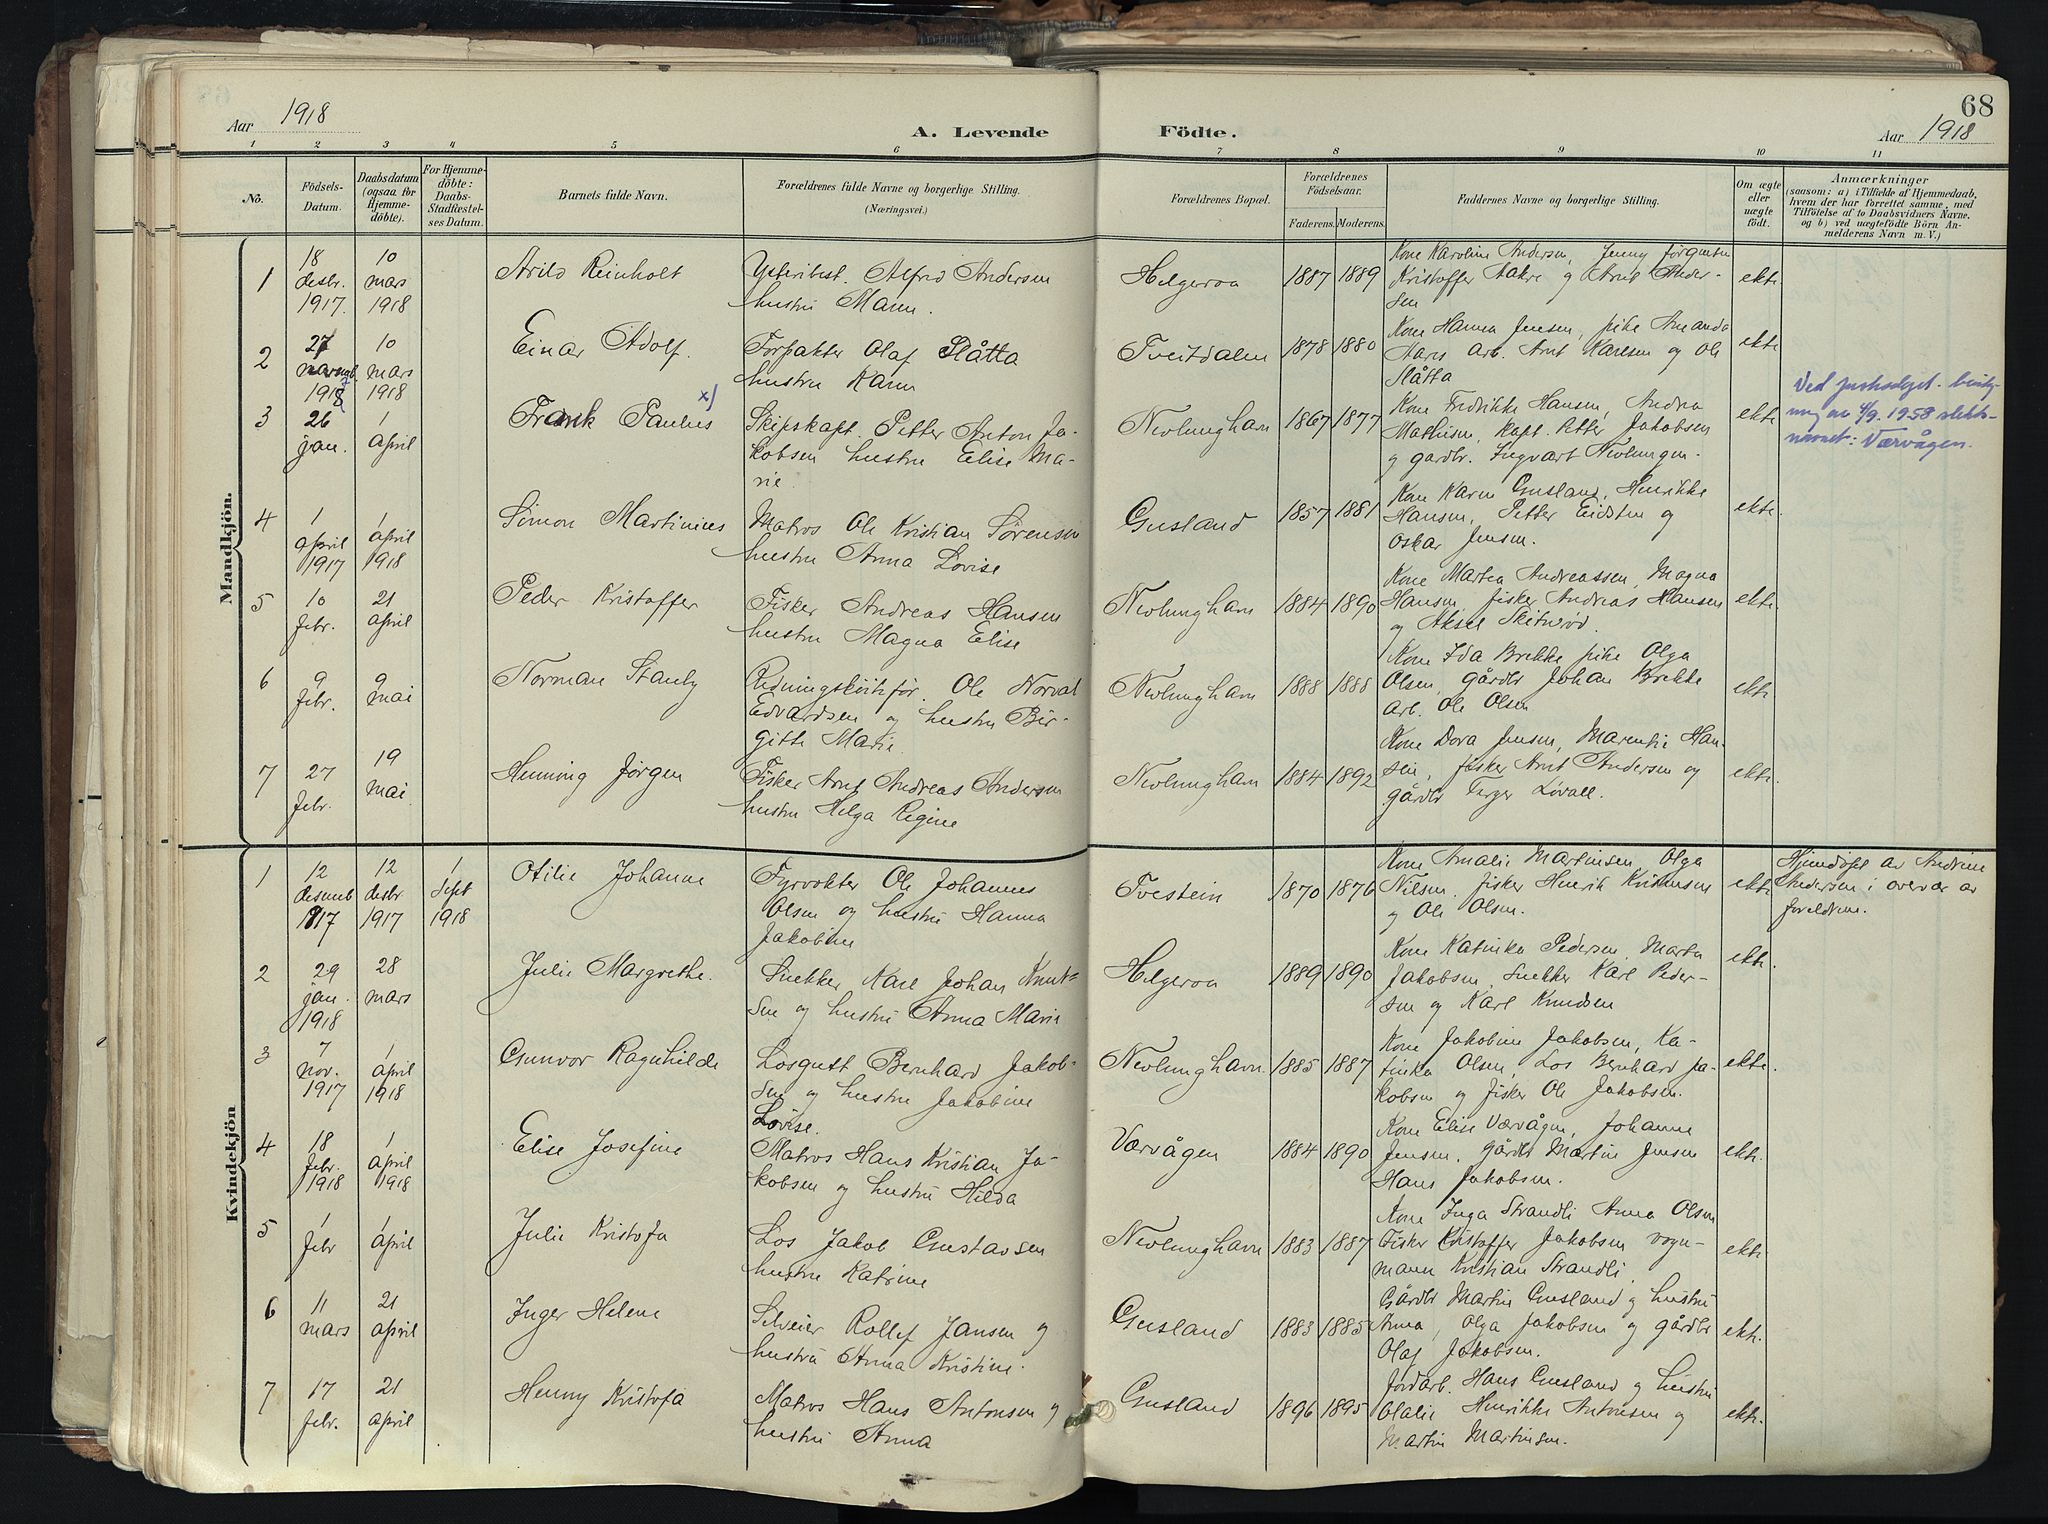 68
Aar 1918
A. Levende Födte.
Aar 1918
1 2 3 4 5 6 7 8 9 10 11
No.
Födsels-
Datum.
Daabsdatum
(ogsaa for
Hjemme-
döbte).
For Hjemme-
döbte:
Daabs-
Stadfæstel-
ses Datum.
Barnets fulde Navn.
Forældrenes fulde Navne og borgerlige Stilling.
(Næringsvei.)
Forældrenes Bopæl.
Forældrenes
Födselsaar.
Faderens. Moderens.
Faddernes Navne og borgerlige Stilling.
Om ægte
eller
uægte
födt.
Anmærkninger
(saasom: a) i Tilfælde af Hjemmedaab,
hvem der har forrettet samme, med
Tilföielse af to Daabsvidners Navne,
og b) ved uægtefödte Börn An-
melderens Navn m. V.)
Mandkjön.
1
18
desbr.
1917.
10
mars
1918
Arild Reinholt
Alfred Andersen
hustru Maren.
Helgeroa
1887 1889
Kone Karoline Andersen, Jenny Jörgensen
Kristoffer Aakre og Arnt Ander-
sen
ekte
2
27
1917
10
mars
1918
Einar Adolf.
Forpakter Olaf Slåtta
hustru Karen
Tveitdalen
1878 1880
Kone Hanna Jensen, pike Amanda
Hans arb. Arnt Karlsen og Ole
Slåtta
ekte
3
26
jan.
1
april
Frank Paulus x)
Skipskapt. Petter Anton Ja-
kobsen hustru Elise Ma-
rie.
Nevlunghavn
1867 1877
Kone Fredrikke Hansen, Andrea
Mathisen, kapt. Petter Jakobsen
og gardbr. Ingvart Nevlungen.
ekte
Ved
4/9. 1958 slekts-
navnet: Værvågen.
4
1
april
1917
1
april
1918
Simon Martinius
Matros Ole Kristian Sørensen
hustru Anna Lovise
Gusland
1857 1881
Kone Karen Gusland, Henrikke
Hansen, Petter Eidsten og
Oskar Jensen.
ekte.
5
10
febr.
21
april
Peder Kristoffer
Fisker Andreas Hansen
hustru Magna Elise
Nevlunghavn
1884 1890
Kone Martea Andreassen, Magna
Hansen, fisker Andreas Hansen
og Aksel
ekte.
6
9
febr.
9
mai
Norman Stanly
Ole Norval
Edvardsen og hustru Bir-
gitte Marie.
Nevlunghavn
1888 1888
Kone Ida Brekke pike Olga
Olsen, gårdbr Johan Brekke
arb. Ole Olsen
ekte.
7
27
febr.
19
mai
Henning Jørgen
Fisker Arnt Andreas Andersen
hustru Helga Regine
Nevlunghavn
1884 1892
Kone Dora Jensen, Marentie Han-
sen, fisker Arnt Andersen og
gårdbr Terger Løvall.
ekte.
Kvindekjön
1
12
desemb
1917
12
desbr
1917
1
sept
1918
Otilie Johanne
Fyrvokter Ole Johannes
Olsen og hustru Hanna
Jakobine
Tvestein
1870 1876
Kone Amalie Martinsen, Olga
Nilsen, fisker Henrik Kristensen
og Ole Olsen.
ekte
Hjemdøpt av Andrine
Andersen i overvær av
foreldrene.
2
29
jan.
1918
28
mars
Julie Margrethe.
Snekker Karl Johan Knut-
sen og hustru Anna Marie
Helgeroa
1889 1890
Kone Katinka Pedersen, Marta
Jakobsen, snekker Karl Peder-
sen og Karl Knudsen
ekte.
3
7
nov.
1917
1
april
1918
Gunvor Ragnhilde
Losgutt Bernhard Jakob-
sen og hustru Jakobine
Lovise.
Nevlunghavn.
1885 1887
Kone Jakobine Jakobsen, Ka-
tinka Olsen, Los Bernhard Ja-
kobsen og fisker Ole Jakobsen.
ekte.
4
18
febr.
1918
1
april
1918
Elise Josefine
Matros Hans Kristian Ja-
kobsen og hustru Hilda
Værvågen
1884 1890
Kone Elise Værvågen, Johanne
Jensen. gårdbr Martin Jensen
Hans Jakobsen.
ekte.
5
1
febr
1
april
Julie Kristofa
Los Jakob Gustavsen
hustru Katrine
Nevlunghavn
1883 1887
Kone Inga Strandli Anna Olsen
Fisker Kristoffer Jakobsen vogn-
mann Kristian Strandli.
ekte
6
11
mars
21
april
Inger Helene
Selveier Rollef Jansen og
hustru Anna Kristine.
Gusland
1883 1885
Gårdbr Martin Gusland og hustru
Anna, Olga Jakobsen og gårdbr
Olaf Jakobsen.
ekte.
7
17
febr.
21
april
Henny Kristofa
Matros Hans Antonsen og
hustru Anna
Gusland
1896 1895
Jordarb. Hans Gusland og hustru
Olalie Henrikke Antonsen og
Martin Martinsen.
ekte.